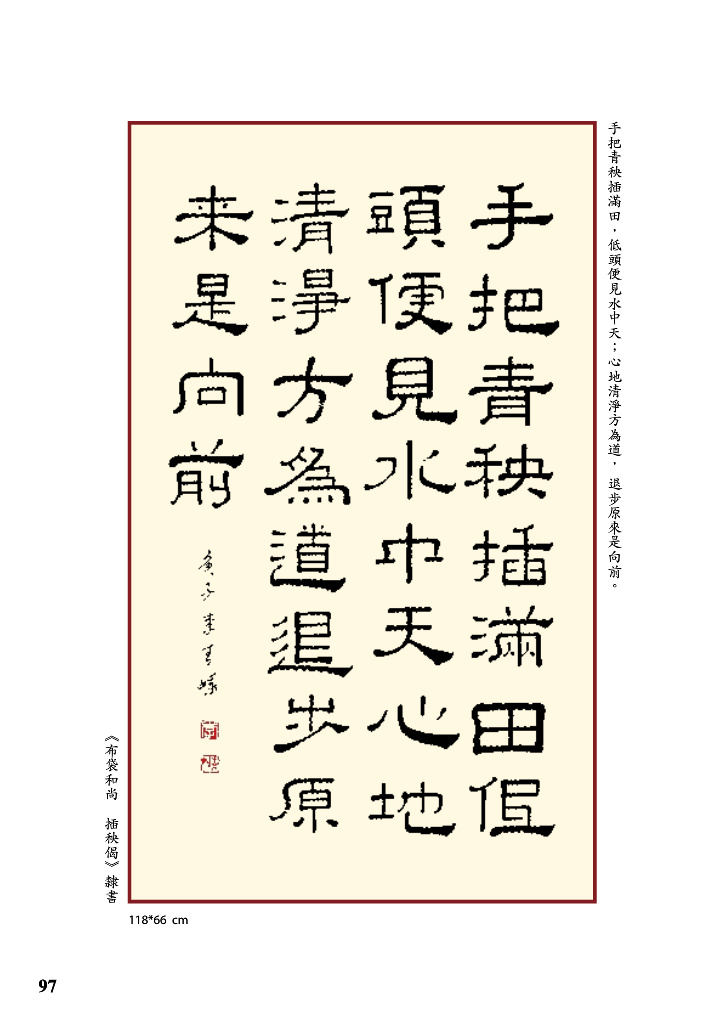 手把青秧插滿田，低頭便見水中天；心地清淨方為道， 退步原來是向前。
手把青秧插滿田低
頭便見水中天心地
清淨方為道退步原
来是向前
《布袋和尚　插秧偈》隸書
118*66 cm
97